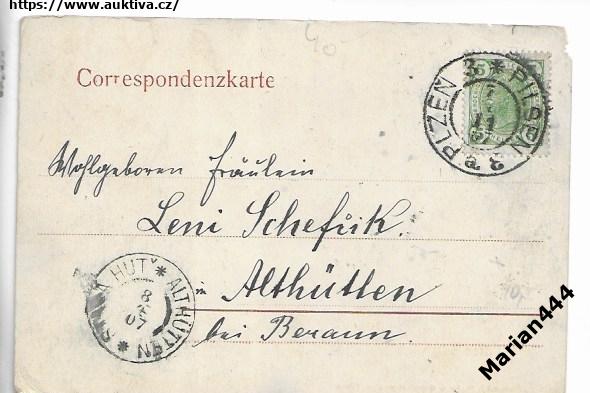 https://www.auktiva.cz/
40-
Correspondenzkarte
PLZEN 3 * PILSEN 3
11
07
Wohlgeboren Fräulein
Leni Schefzik.
in Althütten
bei Beraun.
HUŤ * ALTHÜTTEN *
8
07
Marian444